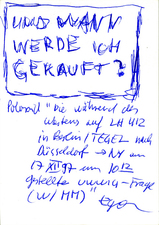 UND WANN
WERDE ICH
GEKAUFT?
Polaroid "Die während des
Wartens auf LH 412
in Berlin/TEGEL nach
Düsseldorf → NY am
17 XII 97 um 10 12
gestellte Frage
(W/MM)"